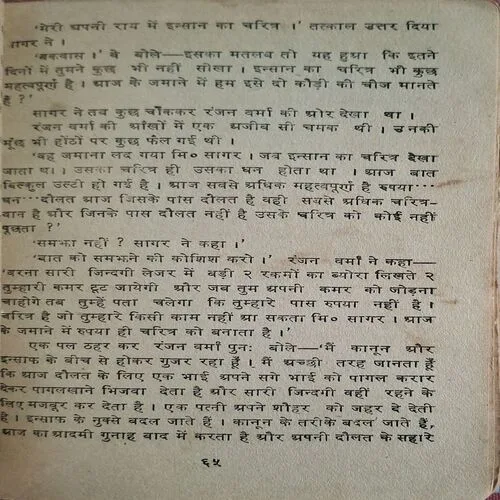 'मेरी अपनी राय में इन्सान का चरित्र ।' तत्काल उत्तर दिया
सागर ने ।
'बकवास ।' वे बोले—इसका मतलब तो यह हुआ कि इतने
दिनों में तुमने कुछ भी नहीं सीखा । इन्सान का चरित्र भी कुछ
महत्वपूर्ण है । आज के जमाने में हम इसे दो कौड़ी की चीज मानते
हैं ?'
सागर ने तब कुछ चौंककर रंजन वर्मा की ओर देखा था ।
रंजन वर्मा की आँखों में एक अजीब सी चमक थी । उनकी
मूंछ भी होंठों पर कुछ फैल गई थी ।
'वह जमाना लद गया मि० सागर । जब इन्सान का चरित्र देखा
जाता था । उसका चरित्र ही उसका धन होता था । आज बात
बिल्कुल उल्टी हो गई है । आज सबसे अधिक महत्वपूर्ण है रुपया···
धन···दौलत आज जिसके पास दौलत है वही सबसे अधिक चरित्र-
वान है और जिनके पास दौलत नहीं है उसके चरित्र को कोई नहीं
पूछता ?'
'समझा नहीं ? सागर ने कहा ।'
'बात को समझने की कोशिश करो ।' रंजन वर्मा ने कहा—
'वरना सारी जिन्दगी लेजर में बड़ी २ रकमों का ब्योरा लिखते २
तुम्हारी कमर टूट जायेगी और जब तुम अपनी कमर को जोड़ना
चाहोगे तब तुम्हें पता चलेगा कि तुम्हारे पास रुपया नहीं है ।
चरित्र है जो तुम्हारे किसी काम नहीं आ सकता मि० सागर । आज
के जमाने में रुपया ही चरित्र को बनाता है ।'
एक पल ठहर कर रंजन वर्मा पुनः बोले—'मैं कानून और
इन्साफ के बीच से होकर गुजर रहा हूँ । मैं अच्छी तरह जानता हूँ
कि आज दौलत के लिए एक भाई अपने सगे भाई को पागल करार
देकर पागलखाने भिजवा देता है और सारी जिन्दगी वहीं रहने के
लिए मजबूर कर देता है । एक पत्नी अपने शौहर को जहर दे देती
है । इन्साफ के नुक्से बदल जाते हैं । कानून के तरीके बदल जाते हैं,
आज का आदमी गुनाह बाद में करता है और अपनी दौलत के सहारे
६५